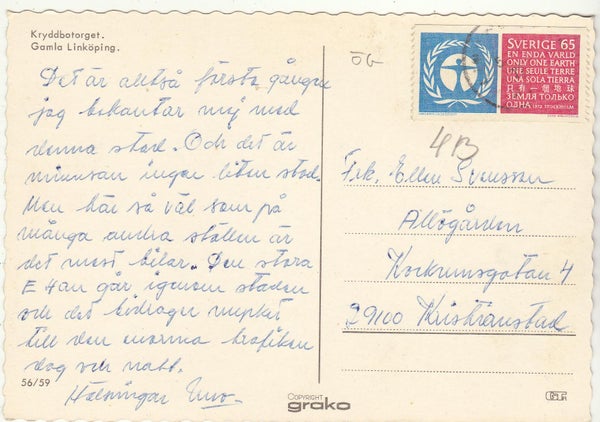 Kryddbotorget.
Gamla Linköping.
Det är alltså första gången
jag bekantar mig med
denna stad. Och det är
minnsan ingen liten stad.
Men här så väl som på
många andra ställen är
det mest bilar. Den stora
E 4an går igenom staden
och det bidrager mycket
till den enorma trafiken
dag och natt.
Hälsningar
56/59
ÖG
SVERIGE 65
EN ENDA VÄRLD
ONLY ONE EARTH
UNE SEULE TERRE
UNA SOLA TIERRA
只有一個地球
ЗЕМЛЯ ТОЛЬКО
ОДНА 1972 STOCKHOLM
4B
Frk. Ellen Svensson
Allögården
Kockumsgatan 4
29100 Kristianstad
COPYRIGHT
grako